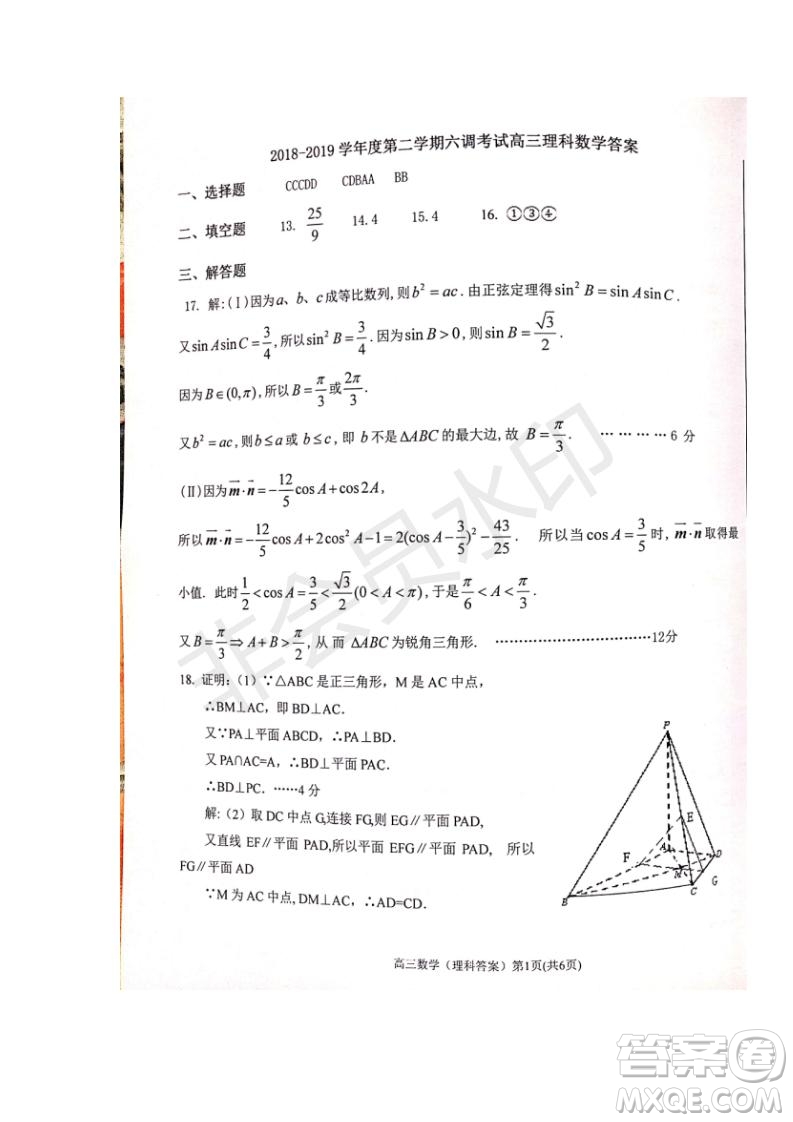 2018-2019 学年度第二学期六调考试高三理科数学答案
一、选择题 CCCDD CDBAA BB
二、填空题 13. 25/9 14.4 15.4 16. ①③④
三、解答题
17. 解:(Ⅰ)因为a、b、c成等比数列,则b²=ac.由正弦定理得sin²B=sinAsinC.
又sinAsinC=3/4,所以sin²B=3/4.因为sinB>0,则sinB=√3/2.
因为B∈(0,π),所以B=π/3或2π/3.
又b²=ac,则b≤a或b≤c,即b不是ΔABC的最大边,故B=π/3. …………6 分
(Ⅱ)因为m·n=-12/5cosA+cos2A,
所以m·n=-12/5cosA+2cos²A-1=2(cosA-3/5)²-43/25. 所以当cosA=3/5时,m·n取得最
小值.此时1/2<cosA=3/5<√3/2(0<A<π),于是π/6<A<π/3.
又B=π/3⇒A+B>π/2,从而ΔABC为锐角三角形. ……………………………12分
18. 证明:(1)∵△ABC是正三角形,M是AC中点,
∴BM⊥AC,即BD⊥AC.
又∵PA⊥平面ABCD,∴PA⊥BD.
又PA∩AC=A,∴BD⊥平面PAC.
∴BD⊥PC.……4分
解:(2)取DC中点G,连接FG,则EG∥平面PAD,
又直线EF∥平面PAD,所以平面EFG∥平面PAD, 所以
FG∥平面AD
∵M为AC中点,DM⊥AC,∴AD=CD.
P
E
A
D
F
M
G
B
C
高三数学(理科答案)第1页(共6页)
非会员水印
答案圈
MXQE.COM